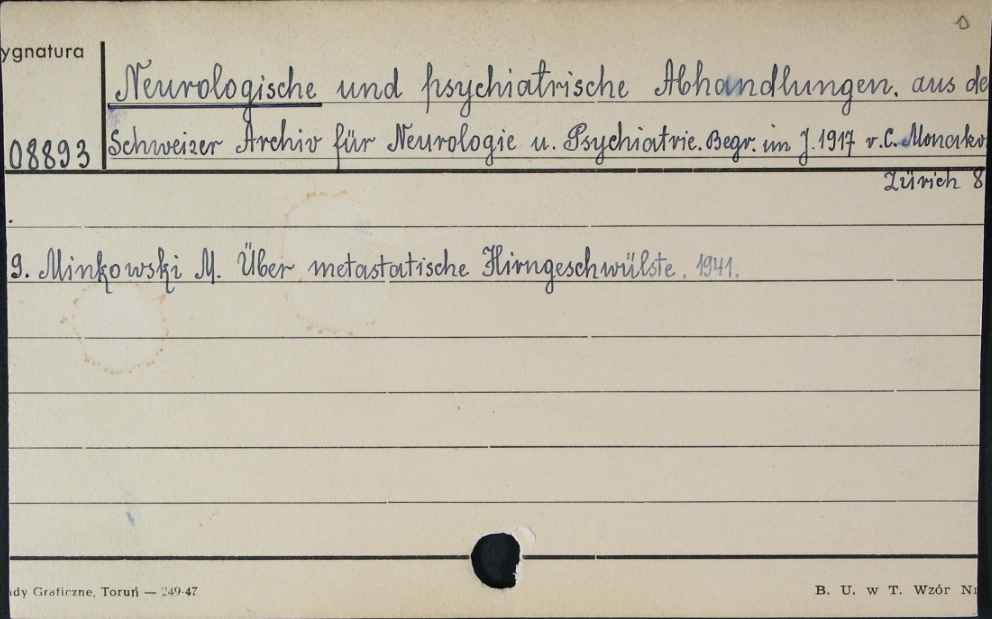 ygnatura
Neurologische und psychiatrische Abhandlungen. aus de
08893 Schweizer Archiv für Neurologie u. Psychiatrie. Begr. im J. 1917 v. C. Monakow
Zürich 8
9. Minkowski M. Über metastatische Hirngeschwülste. 1941.
dy Graficzne, Toruń — 249-47
B. U. w T. Wzór Nr